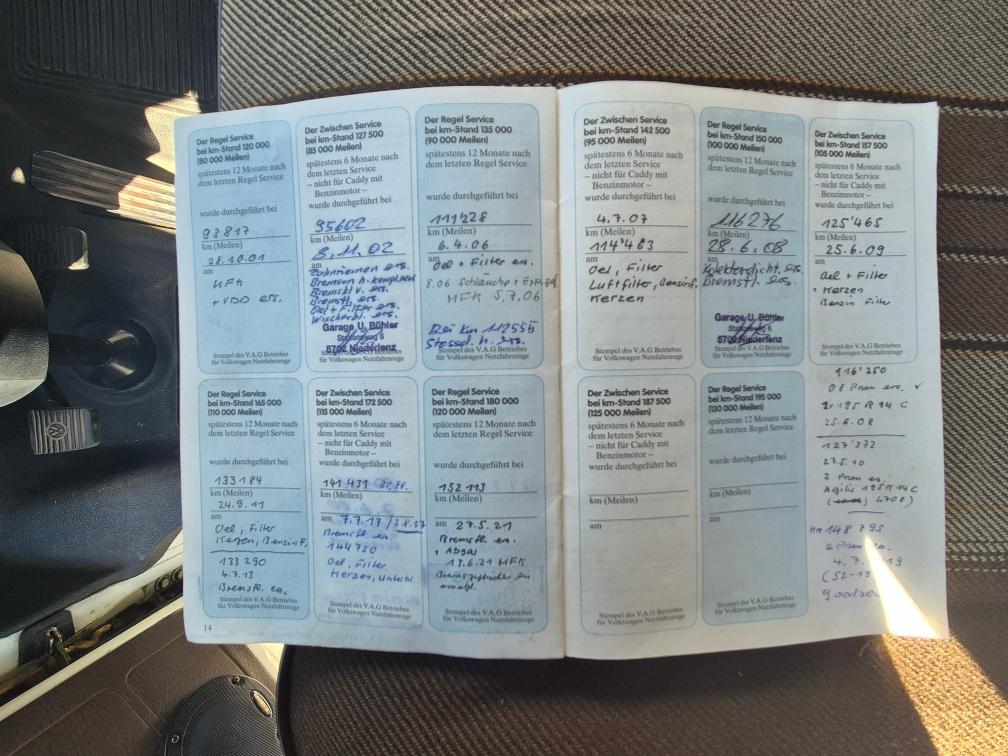 Der Regel Service
bei km-Stand 120 000
(80 000 Meilen)
spätestens 12 Monate nach
dem letzten Regel Service
wurde durchgeführt bei
98817
km (Meilen)
28.10.01
am
MFK
+ VDD ers.
Der Zwischen Service
bei km-Stand 127 500
(85 000 Meilen)
spätestens 6 Monate nach
dem letzten Regel Service
– nicht für Caddy mit
Benzinmotor –
wurde durchgeführt bei
95602
km (Meilen)
8.11.02
am
Zahnriemen ers.
Bremsen h. komplett
Bremskl v. ers.
Bremsfl. ers.
Oel + Filter ers.
Wischerbl. ers.
Garage U. Bühler
5702 Niederlenz
Stempel des V.A.G Betriebes
für Volkswagen Nutzfahrzeuge
Der Regel Service
bei km-Stand 135 000
(90 000 Meilen)
spätestens 12 Monate nach
dem letzten Regel Service
wurde durchgeführt bei
111'228
km (Meilen)
6.4.06
am
Oel + Filter er.
8.06 Schläuche +
MFK 5.7.06
Bei km 112556
Stossd. h. ers.
Stempel des V.A.G Betriebes
für Volkswagen Nutzfahrzeuge
Der Zwischen Service
bei km-Stand 142 500
(95 000 Meilen)
spätestens 6 Monate nach
dem letzten Regel Service
– nicht für Caddy mit
Benzinmotor –
wurde durchgeführt bei
4.7.07
km (Meilen)
114'463
am
Oel, Filter
Luftfilter, Benzinf.
Kerzen
Stempel des V.A.G Betriebes
für Volkswagen Nutzfahrzeuge
Der Regel Service
bei km-Stand 150 000
(100 000 Meilen)
spätestens 12 Monate nach
dem letzten Regel Service
wurde durchgeführt bei
116276
km (Meilen)
28.6.08
am
Bremsfl. ers.
Garage U. Bühler
5702 Niederlenz
Stempel des V.A.G Betriebes
für Volkswagen Nutzfahrzeuge
Der Zwischen Service
bei km-Stand 157 500
(105 000 Meilen)
spätestens 6 Monate nach
dem letzten Regel Service
– nicht für Caddy mit
Benzinmotor –
wurde durchgeführt bei
125'465
km (Meilen)
25.6.09
am
Oel + Filter
Kerzen
Benzin Filter
Stempel des V.A.G Betriebes
für Volkswagen Nutzfahrzeuge
Der Regel Service
bei km-Stand 165 000
(110 000 Meilen)
spätestens 12 Monate nach
dem letzten Regel Service
wurde durchgeführt bei
133184
km (Meilen)
24.9.11
am
Oel, Filter
Kerzen, Benzin F.
133 290
4.7.13
Bremsfl. er.
Stempel des V.A.G Betriebes
für Volkswagen Nutzfahrzeuge
Der Zwischen Service
bei km-Stand 172 500
(115 000 Meilen)
spätestens 6 Monate nach
dem letzten Regel Service
– nicht für Caddy mit
Benzinmotor –
wurde durchgeführt bei
141 431
km (Meilen)
am
7.7.17
Bremsfl. er.
144720
Oel, Filter
Kerzen,
Stempel des V.A.G Betriebes
für Volkswagen Nutzfahrzeuge
Der Regel Service
bei km-Stand 180 000
(120 000 Meilen)
spätestens 12 Monate nach
dem letzten Regel Service
wurde durchgeführt bei
152 113
km (Meilen)
am 27.5.21
Bremsfl. er.
+ Abgas
17.6.21 MFK
Stempel des V.A.G Betriebes
für Volkswagen Nutzfahrzeuge
Der Zwischen Service
bei km-Stand 187 500
(125 000 Meilen)
spätestens 6 Monate nach
dem letzten Regel Service
– nicht für Caddy mit
Benzinmotor –
wurde durchgeführt bei
km (Meilen)
am
Stempel des V.A.G Betriebes
für Volkswagen Nutzfahrzeuge
Der Regel Service
bei km-Stand 195 000
(130 000 Meilen)
spätestens 12 Monate nach
dem letzten Regel Service
wurde durchgeführt bei
km (Meilen)
am
Stempel des V.A.G Betriebes
für Volkswagen Nutzfahrzeuge
116'250
08 Pneu ers.
195 R 14 C
25.6.08
127'372
27.5.10
2 Pneu er.
Agilis 195 R 14 C
km 148 795
4 Pneu er.
14